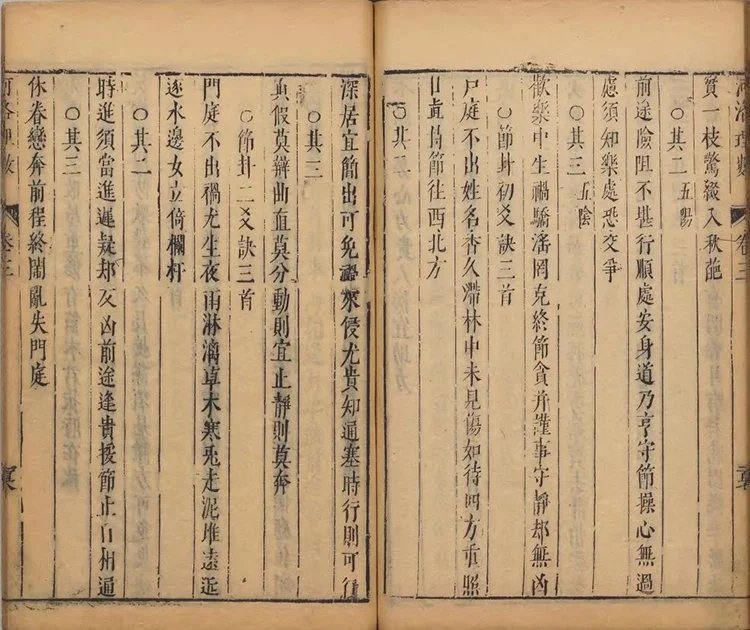 河洛理數 卷三
賁一枝驚綴入秋葩
○其二 五陽
前途險阻不堪行順處安身道乃亨守節操心無過
慮須知樂處恐交爭
○其三 五陰
歡樂中生禍驕奢罔克終節貪并謹事守靜却無凶
○節卦初爻訣三首
戶庭不出姓名香久滯林中未見傷如待四方重照
日直侍節往西北方
○其二
深居宜簡出可免禍來侵尤貴知通塞時行則可行
○其三
真假莫辯曲直莫分動則宜止靜則莫奔
○節卦二爻訣三首
門庭不出禍尤生夜雨淋漓草木寒兎走泥堆遠近
逐水邊女立倚欄杆
○其二
時進須當進遲疑却反凶前途逢貴援節止自州通
○其三
休眷戀奔前程終鬧亂失門庭
河洛理數 卷三